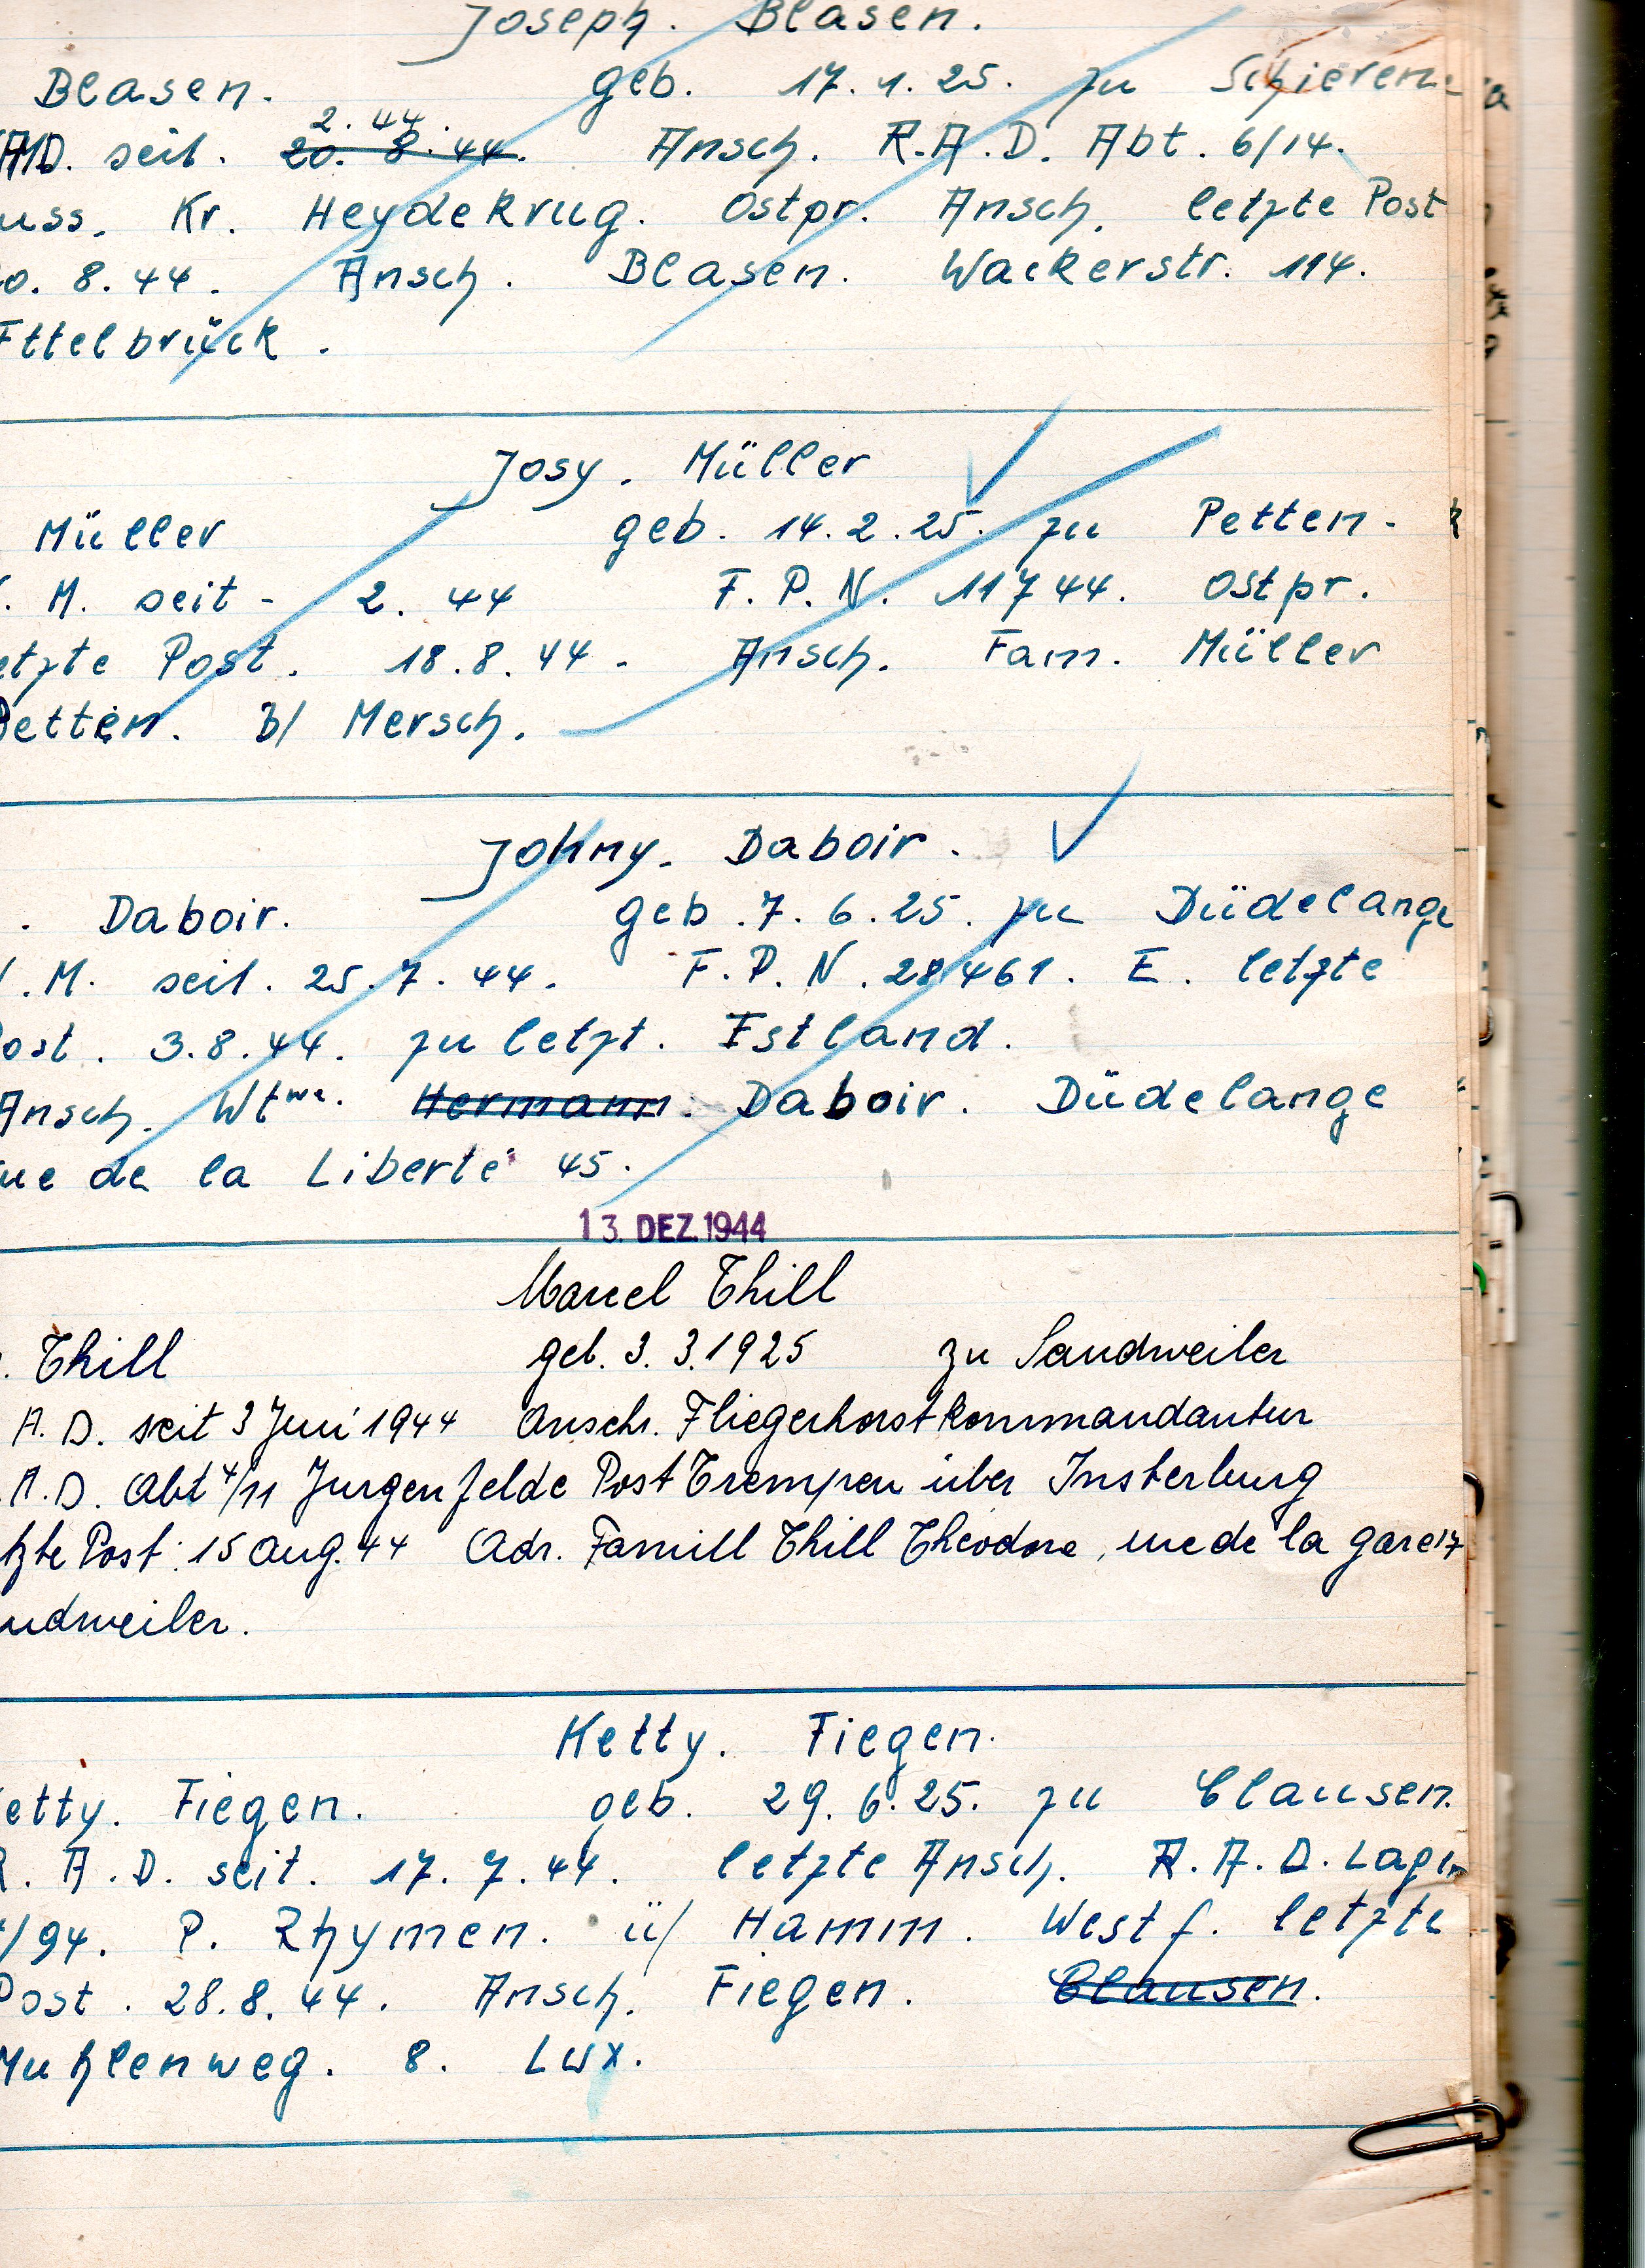 Joseph. Blasen.
Blasen. geb. 17.1.25. zu Schieren.
seit. 2.44. 20. 8. 44. Ansch. R.A.D. Abt. 6/14.
uss, Kr. Heydekrug. Ostpr. Ansch. letzte Post
0. 8. 44. Ansch. Blasen. Wackerstr. 114.
Ettelbrück.
Josy. Müller
Müller geb. 14.2.25. zu Petten-
. M. seit - 2. 44 F.P.N. 11744. Ostpr.
etzte Post. 18.8.44. Ansch. Fam. Müller
Petten. b/ Mersch.
Johny. Daboir.
. Daboir. geb. 7.6.25. zu Düdelange
.M. seit. 25.7.44. F.P.N. 28461. E. letzte
ost. 3.8.44. zu letzt. Estland.
Ansch. Wtwe. Hermann. Daboir. Düdelange
ue de la Liberté 45.
13. DEZ. 1944
Marcel Thill
. Thill geb. 3. 3. 1925 zu Sandweiler
A. D. seit 3 Juni 1944 Anschr. Fliegerhorstkommandantur
.A.D. Abt 4/11 Jurgenfelde Post Trempen über Insterburg
tzte Post: 15 Aug. 44 Adr. Famill Thill Theodore, rue de la gare 17
ndweiler.
Ketty. Fiegen.
etty. Fiegen. geb. 29.6.25. zu Clausen.
R. A.D. seit. 17. 7. 44. letzte Ansch. R.A.D. Lager
/94. P. Rhymen. ü/ Hamm. Westf. letzte
Post. 28.8.44. Ansch. Fiegen. Clausen.
Muhlenweg. 8. Lux.